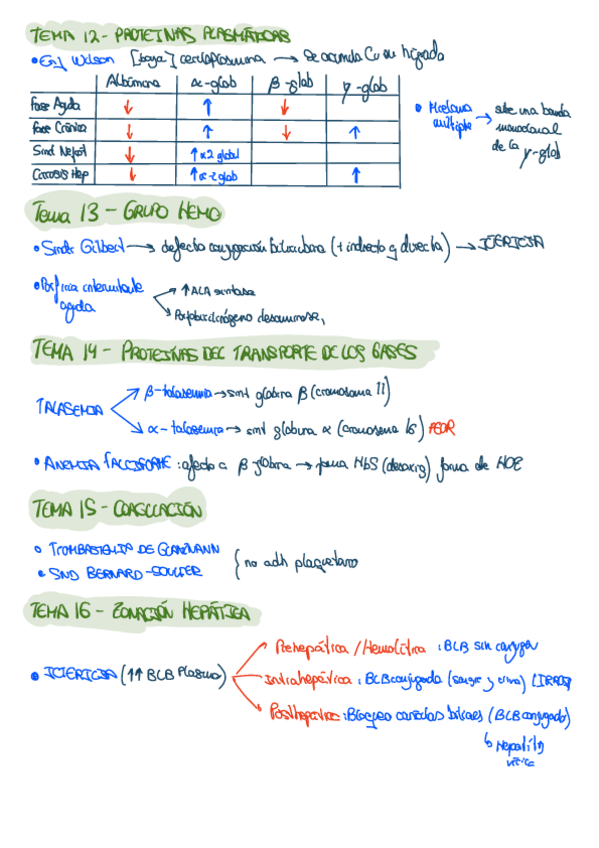 TEMA 12 - PROTEINAS PLASMÁTICAS
• Enf Wilson [baja] ceruloplasmina → Se acumula Cu en hígado
Albúmina α-glob β-glob γ-glob
Fase Aguda ↓ ↑ ↓
Fase Crónica ↓ ↑ ↓ ↑
Sind Nefrót ↓ ↑α2 globul
Cirrosis Hep ↓ ↑α-2 glob ↑
• Mieloma múltiple → sale una banda monoclonal de la γ-glob
Tema 13 - GRUPO HEMO
• Sindr Gilbert → defecto conjugación bilirrubina (+ indirecta q directa) → ICTERICIA
• Porfiria intermitente aguda
↑ALA sintasa
Porfobilinógeno desaminasa
TEMA 14 - PROTEINAS DEL TRANSPORTE DE LOS GASES
TALASEMIA
β-talasemia → sint globina β (cromosoma 11)
α-talasemia → sint globina α (cromosoma 16) PEOR
• ANEMIA FALCIFORME: afecta a β globina → forma HbS (desoxig) forma de HOZ
TEMA 15 - COAGULACIÓN
• TROMBASTENIA DE GLANZMANN
• SND BERNARD-SOULIER
{ no adh plaquetaria
TEMA 16 - ZONACIÓN HEPÁTICA
• ICTERICIA (↑↑ BLB Plasma)
Prehepática / Hemolítica : BLB sin conjugar
Intrahepática : BLB conjugada (sangre y orina)
Posthepática : Bloqueo canales biliares (BLB conjugada)
↳ Hepatitis vírica